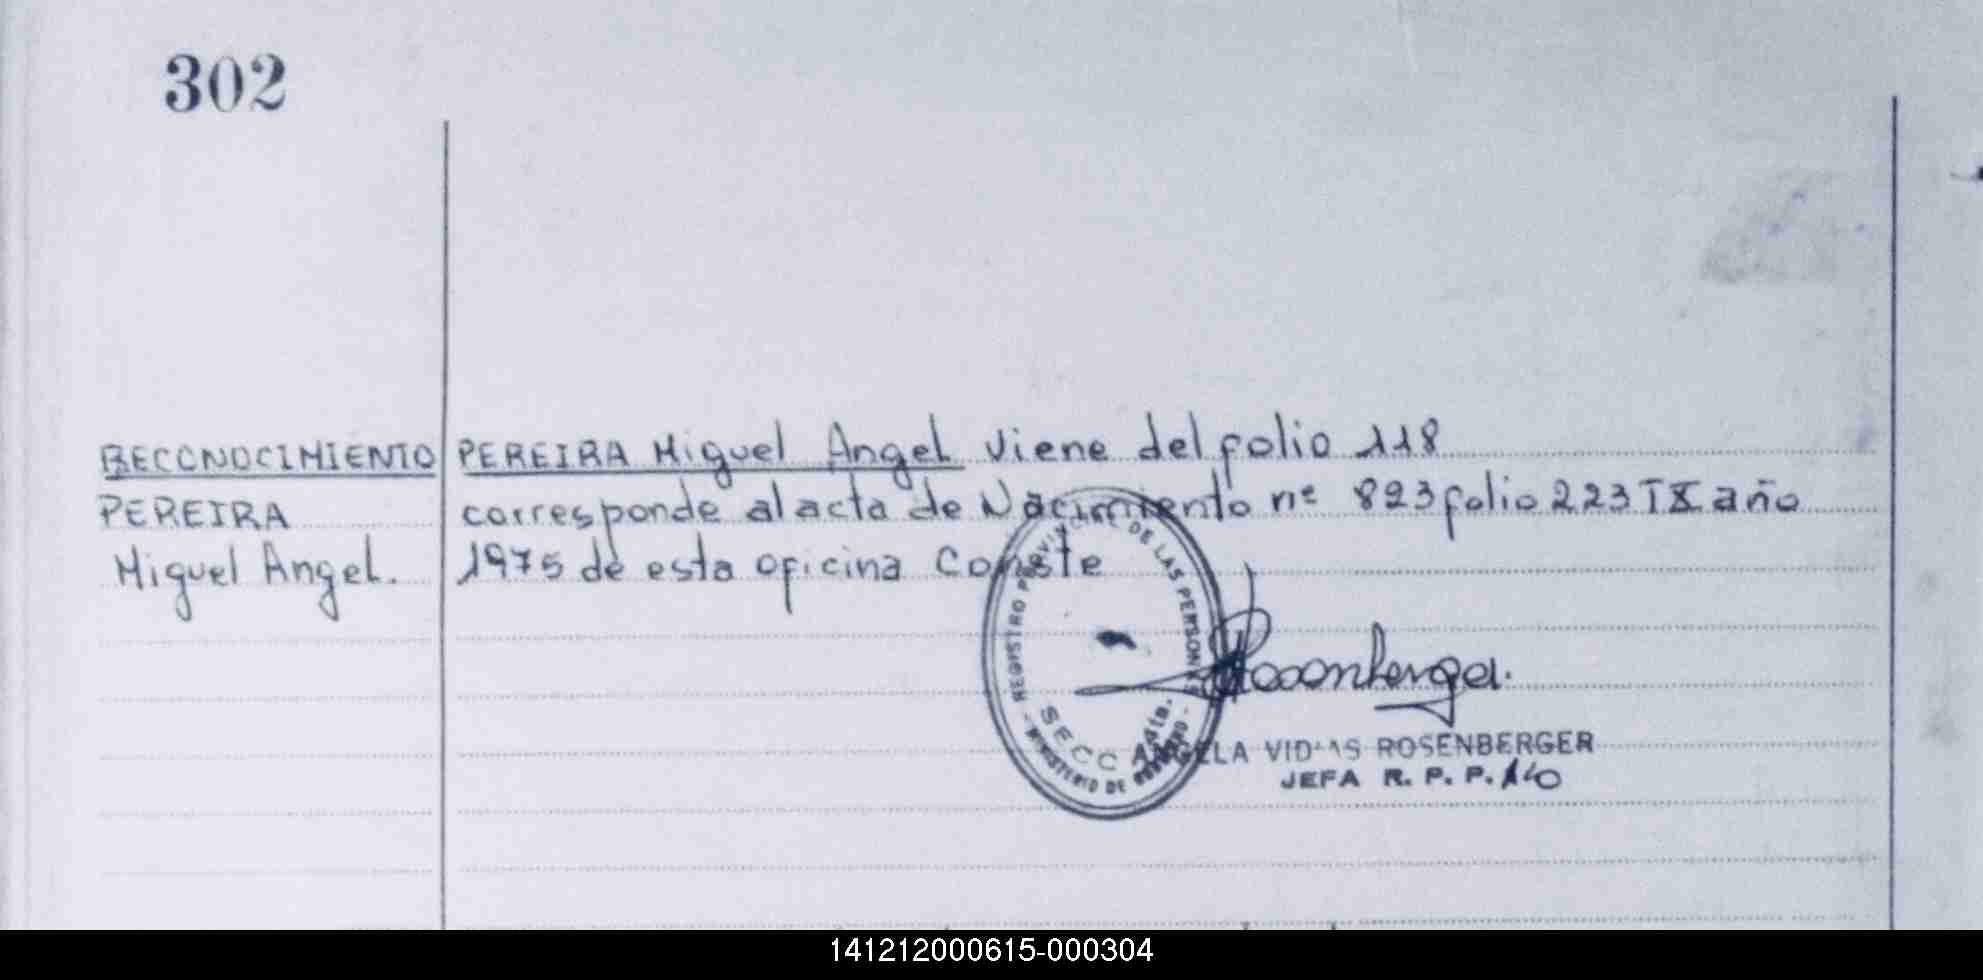 302
RECONOCIMIENTO
PEREIRA
Miguel Angel.
PEREIRA Miguel Angel viene del folio 118
corresponde al acta de Nacimiento nº 823 folio 223 TX año
1975 de esta oficina Conste
REGISTRO PROVINCIAL DE LAS PERSONAS
SECC 14ta.
MINISTERIO DE GOBIERNO
Rosenberger.
ELA VIDAS ROSENBERGER
JEFA R. P. P.
141212000615-000304